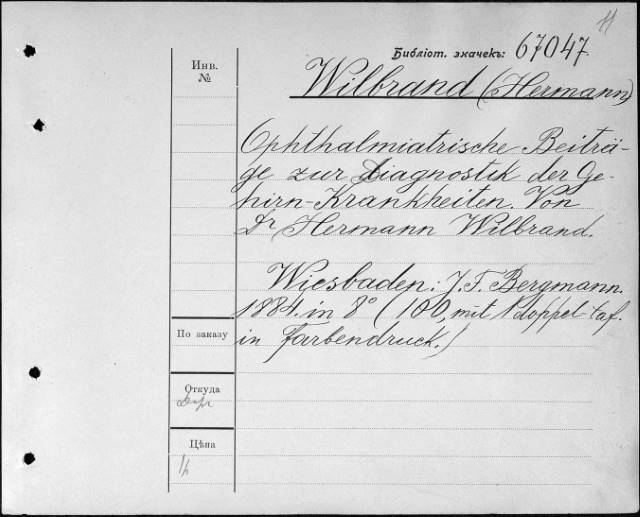 11
Библіот. значекъ: 67047
Инв.
№
Wilbrand (Hermann)
Ophthalmiatrische Beiträ-
ge zur Diagnostik der Ge-
hirn-Krankheiten. Von
Dr Hermann Wilbrand.
Wiesbaden: J. F. Bergmann.
1884. in 8° (160, mit 1 doppel-taf.
in Farbendruck.)
По заказу
Откуда
Цѣна